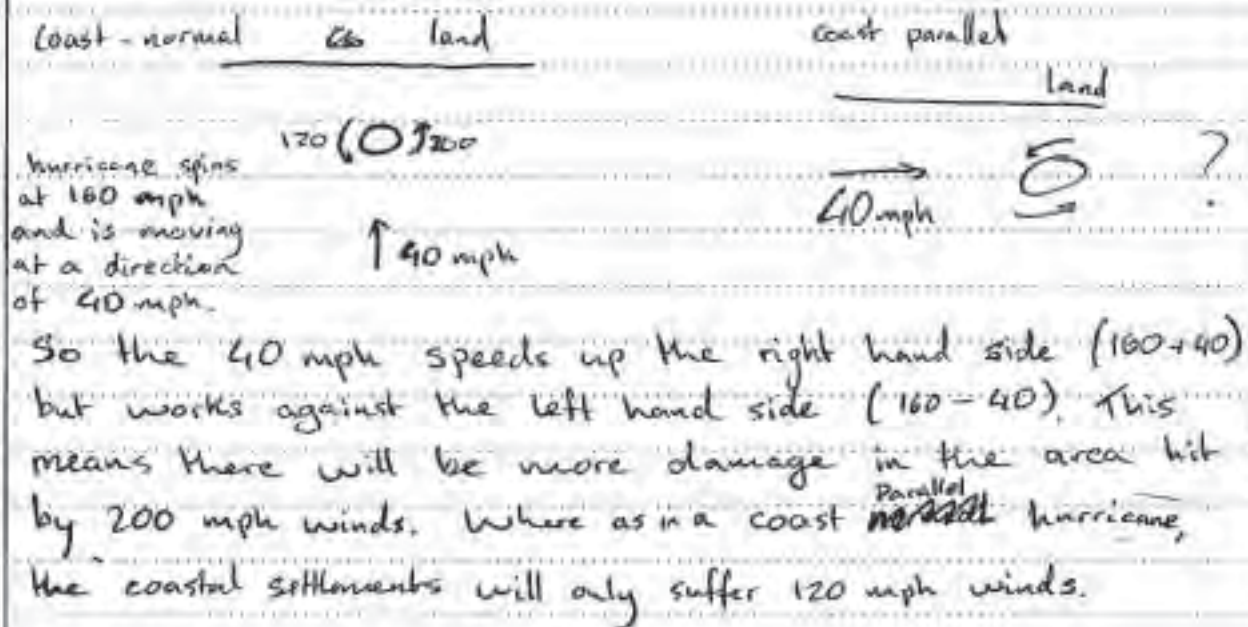 coast-normal land coast parallel
land
120 200
hurricane spins
at 160 mph
and is moving
at a direction
of 40 mph.
40 mph
40 mph
?
So the 40 mph speeds up the right hand side (160+40)
but works against the left hand side (160-40). This
means there will be more damage in the area hit
by 200 mph winds. Where as in a coast Parallel hurricane,
the coastal settlements will only suffer 120 mph winds.